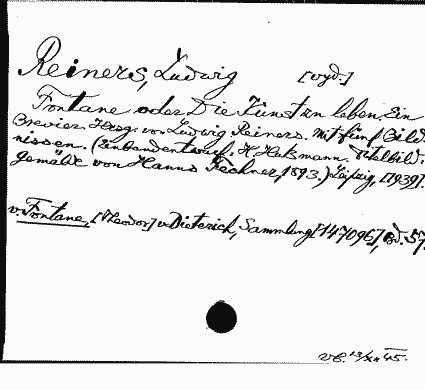 Reiners, Ludwig [wyd.]
Fontane oder Die Kunst zu leben. Ein
Brevier. Hrsg. von Ludwig Reiners. Mit fünf Bild-
nissen. (Einbandentwurf: H. Hußmann. Titelbild:
Gemälde von Hanns Fechner, 1893.) Leipzig, [1939].
v. Fontane, [Theodor] v. Dieterich, Sammlung [147096], Bd. 57.